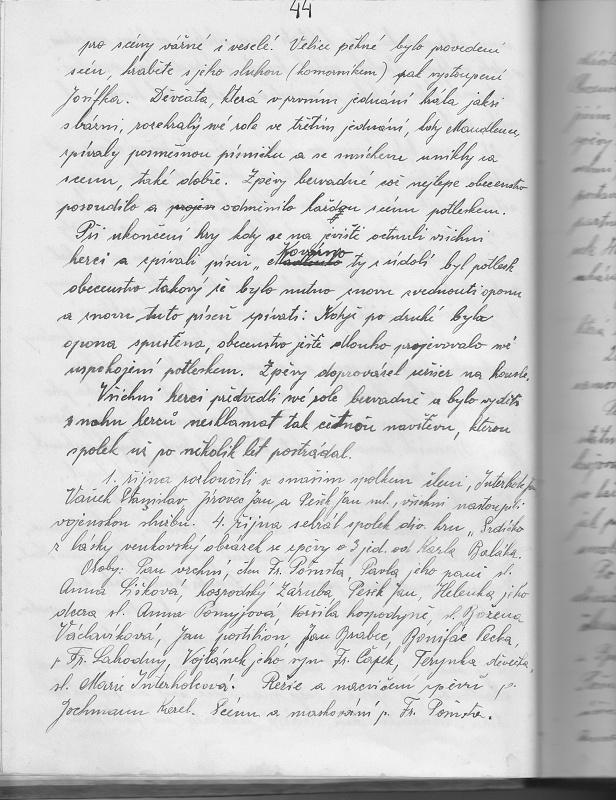 44
pro scény vážné i veselé. Velice pěkné bylo provedení
scén, hraběte s jeho sluhou (komorníkem) pak vystoupení
Josífka. Děvčata, která v prvním jednání hrála jaksi
sbární, rozehrály své role ve třetím jednání, kdy Mandlenu
zpívaly posměšnou písničku a se smíchem unikly za
scenu, také dobře. Zpěvy bezvadné což nejlépe obecenstvo
posoudilo a projev odměnilo každou scénu potleskem.
Při ukončení hry kdy se na jeviště octnuli všichni
herci a zpívali píseň „Kovárno ty z údolí byl potlesk
obecenstva takový že bylo nutno znovu zvednouti oponu
a znovu tuto píseň zpívati. Když po druhé byla
opona spuštěna, obecenstvo ještě dlouho projevovalo své
uspokojení potleskem. Zpěvy doprovázel režiser na housle.
Všichni herci předvedli své role bezvadně a bylo viděti
snahu herců nesklamat tak četnou navštěvu, kterou
spolek už po několik let postrádal.
1. října rozloučili se s naším spolkem členi, Interholc Jan
Vaněk Stanislav, Jirovec Jan a Pešek Jan ml., všichni nastoupili
vojenskou službu. 4. října sehrál spolek div. hru „Srdíčko
z lásky venkovský obrázek se zpěvy o 3 jed. od Karla Baláka.
Osoby: Pan vrchní, čten Fr. Pómsta, Pavla jeho paní sl.
Anna Lišková, hospodský Záruba, Pešek Jan, Helenka jeho
dcera sl. Anna Pomyjová, Korčila hospodyně, sl. Božena
Václavíková, Jan postilion Jan Brabec, Bonifac Pecka,
p. Fr. Lahodny, Vojtánek jeho syn Fr. Čapek, Terynka děvečka,
sl. Marie Interholcová. Režie a nacvičení zpěvů p.
Jochmann Karel. Scénu a maskování p. Fr. Pómsta.